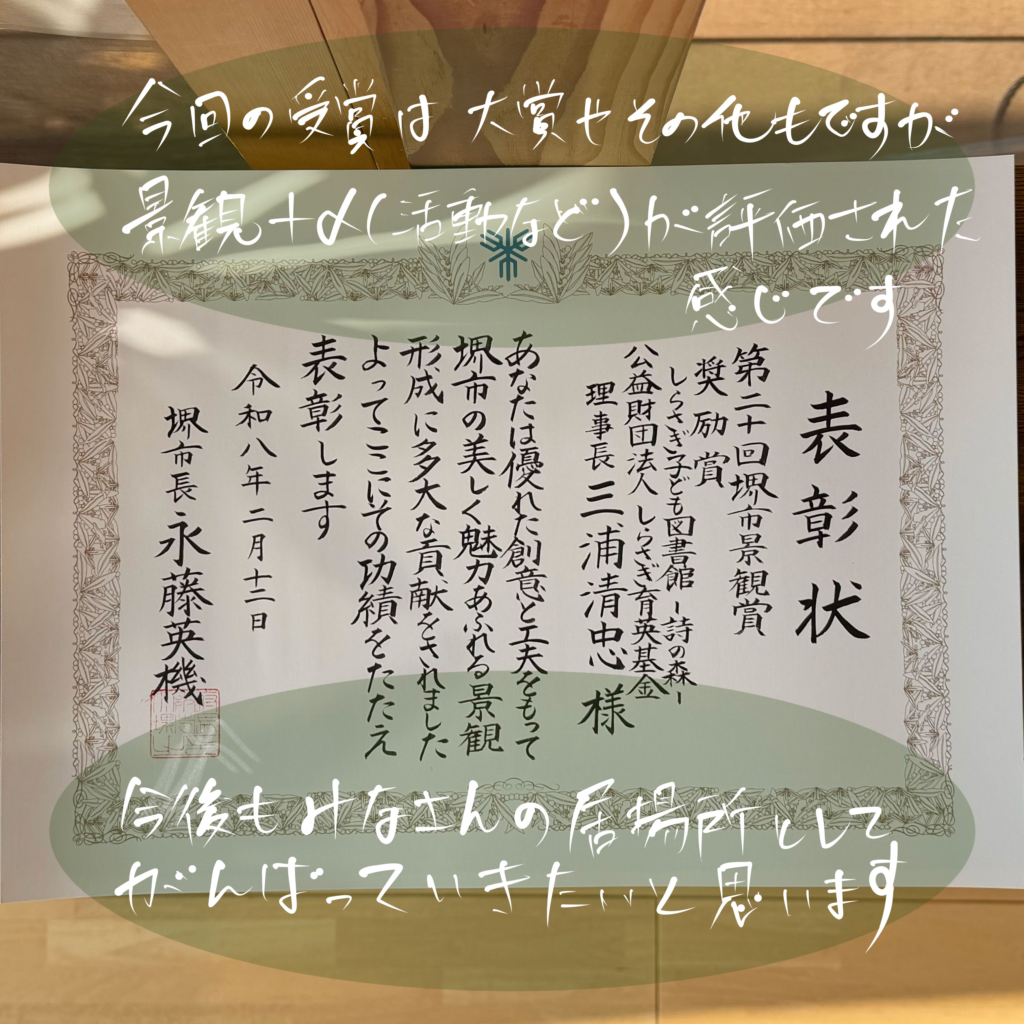 今回の受賞は 大賞やその他もですが
景観+α(活動など)が評価された
感じです
表彰状
第二十回堺市景観賞
奨励賞
しらさぎ子ども図書館ー詩の森ー
公益財団法人 しらさぎ育英基金
理事長 三浦清忠 様
あなたは優れた創意と工夫をもって
堺市の美しく魅力あふれる景観
形成に多大な貢献をされました
よってここにその功績をたたえ
表彰します
令和八年 二月十二日
堺市長 永藤英機
今後もみなさんの居場所として
がんばっていきたいと思います